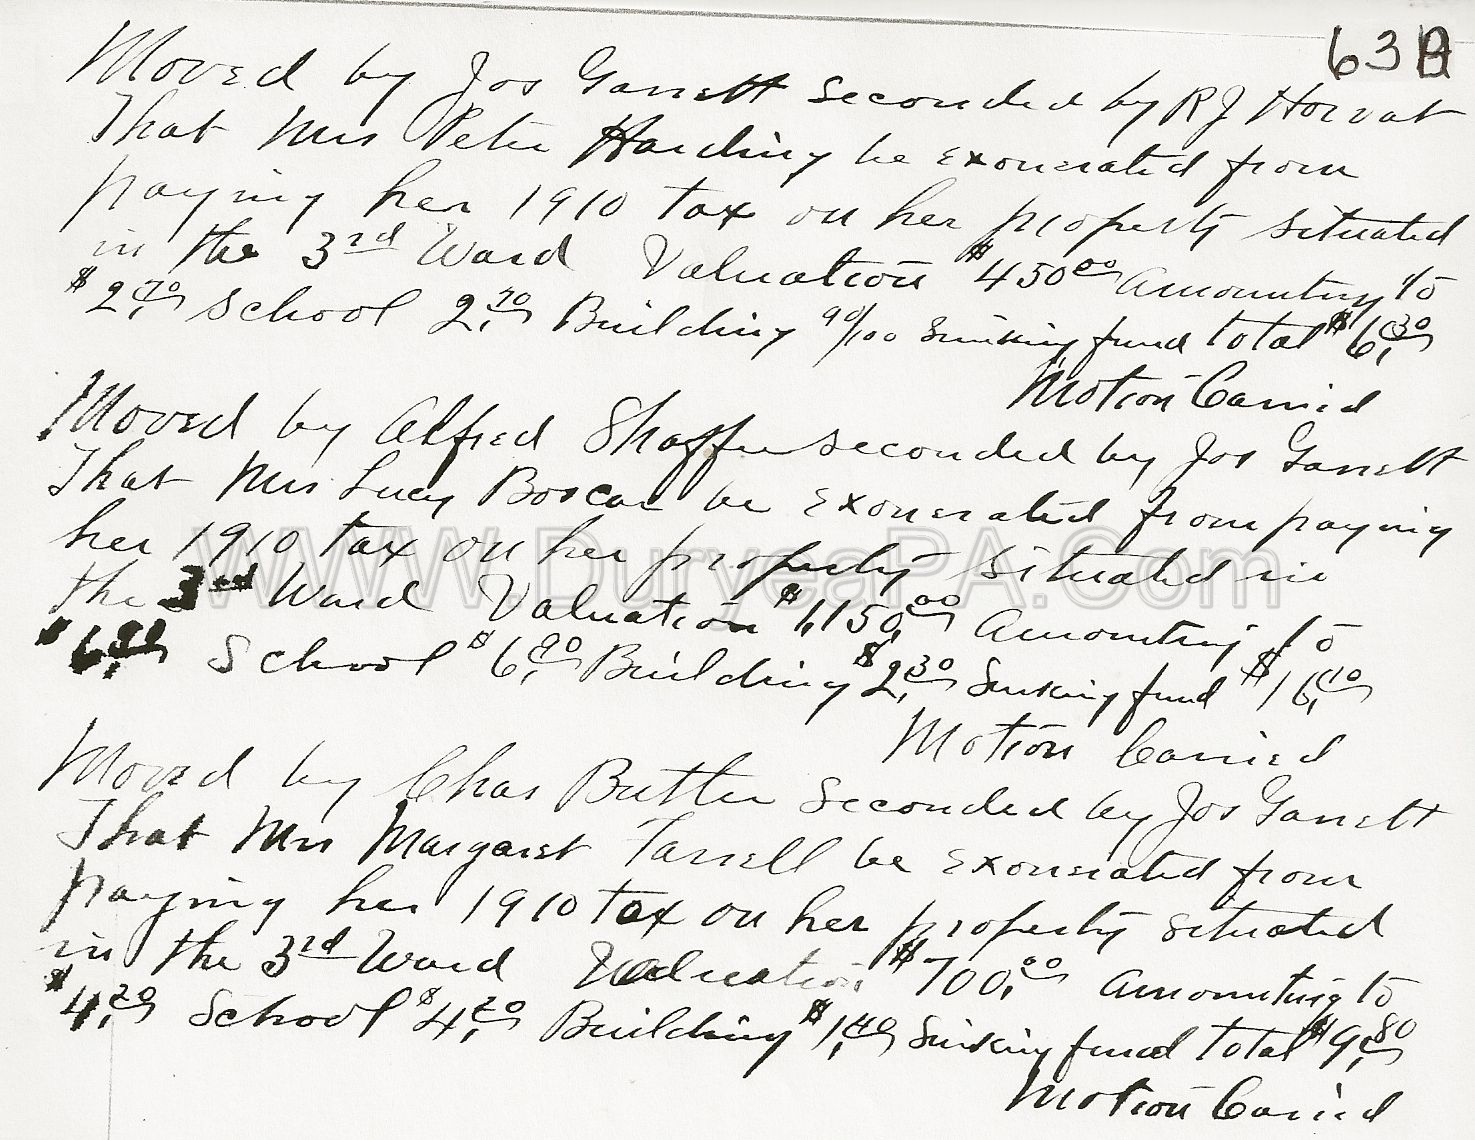 63B
Moved by Jos Garrett seconded by RJ Horvat
That Mrs Peter Harding be exonerated from
paying her 1910 tax on her property situated
in the 3rd Ward Valuation $450.00 Amounting to
$2.70 School 2.70 Building 90/100 Sinking fund total $6.30
Motion Carried
Moved by Alfred Shaffer seconded by Jos Garrett
That Mrs Lucy Boscar be exonerated from paying
her 1910 tax on her property situated in
WWW.DuryeaPA.Com
the 3rd Ward Valuation $1,150.00 Amounting to
$6.90 School $6.90 Building $2.30 Sinking fund $16.10
Motion Carried
Moved by Chas Butler seconded by Jos Garrett
That Mrs Margaret Farrell be exonerated from
paying her 1910 tax on her property situated
in the 3rd Ward Valuation $700.00 Amounting to
$4.20 School $4.20 Building $1.40 Sinking fund total $9.80
Motion Carried